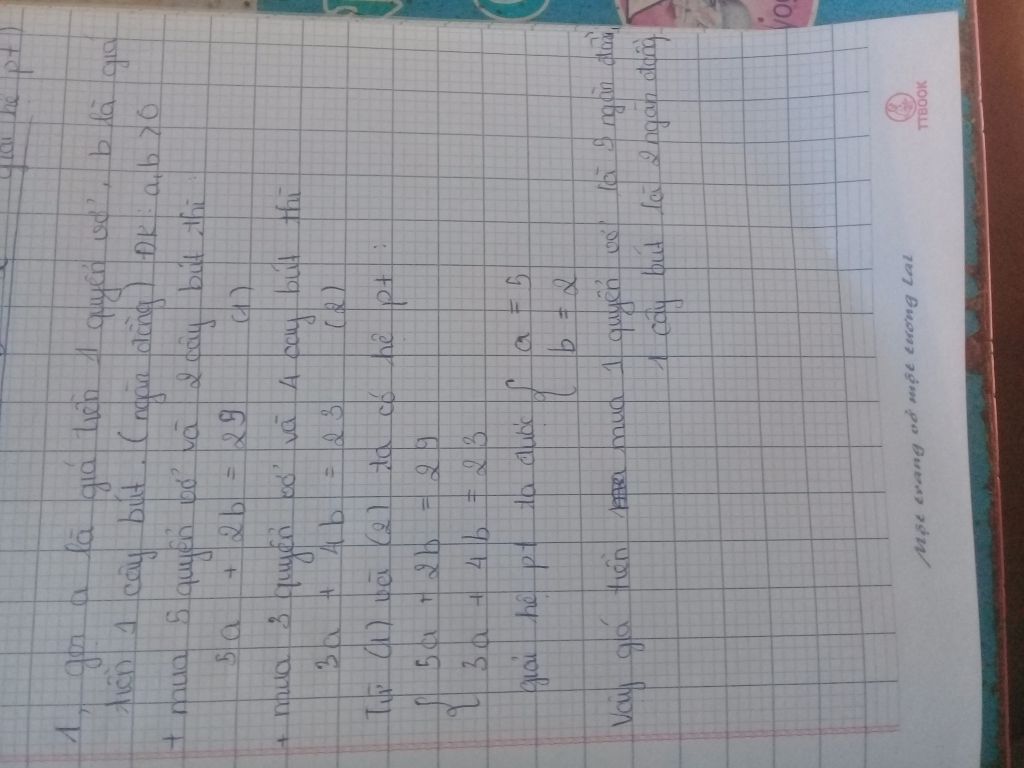 giải hệ pt)
1, gọi a là giá tiền 1 quyển vở, b là giá
tiền 1 cây bút. (ngàn đồng) ĐK: a, b > 0
+ mua 5 quyển vở và 2 cây bút thì:
5a + 2b = 29 (1)
+ mua 3 quyển vở và 4 cây bút thì
3a + 4b = 23 (2)
Từ (1) và (2) ta có hệ pt:
{ 5a + 2b = 29
{ 3a + 4b = 23
giải hệ pt ta được { a = 5
b = 2
Vậy giá tiền mua 1 quyển vở là 5 ngàn đồng
1 cây bút là 2 ngàn đồng
TTBOOK
Một trang vở một tương lai